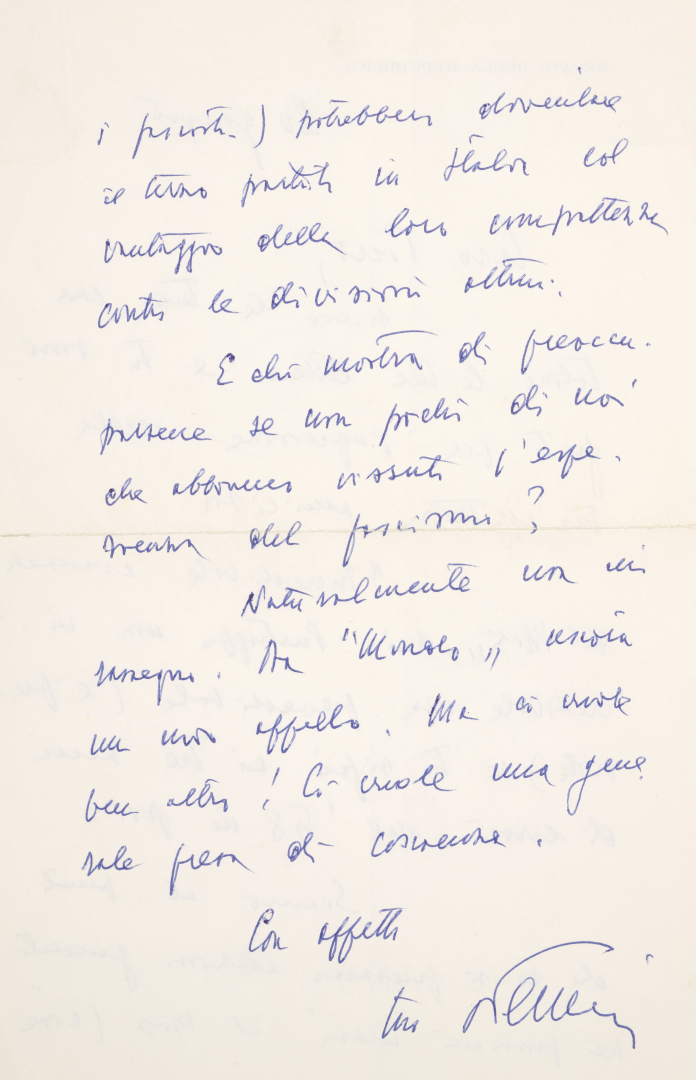 i fascisti.) potrebbero diventare
il terzo partito in Italia col
vantaggio della loro compattezza
contro le divisioni altrui.
E chi mostra di preoccu-
parsene se non pochi di noi
che abbiamo vissuto l'espe-
rienza del fascismo?
Naturalmente non mi
rassegno. Da "Mondo" uscirà
un mio appello. Ma ci vuole
ben altro! Ci vuole una gene-
rale presa di coscienza.
Con affetto
tuo